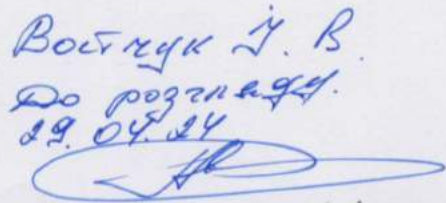 Войчук І. В.
До розгляду.
29.04.24